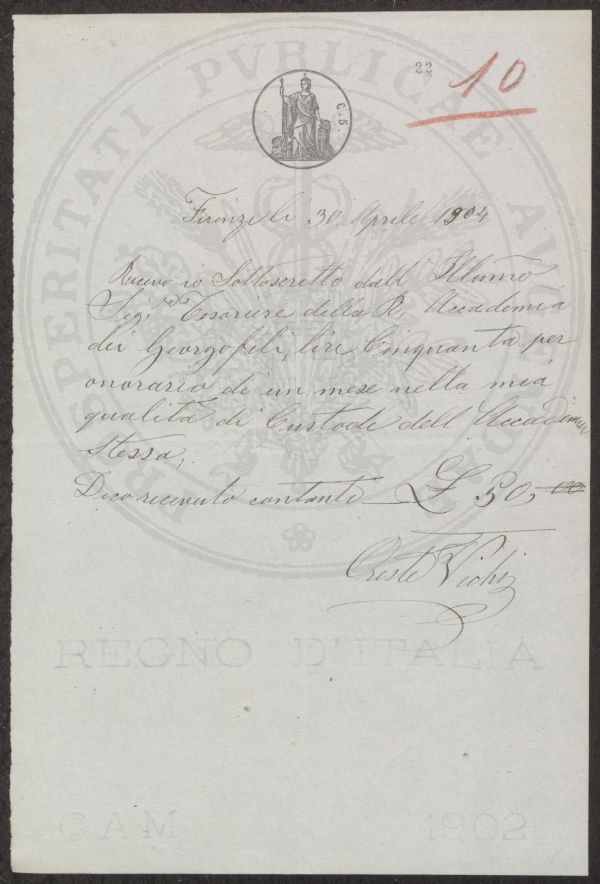 PROSPERITATI PVBLICAE AVGENDAE
22
10
C. 5.
Firenze li 30 Aprile 1904
Ricevo io Sottoscritto dall' Illumō
Sigr. Tesoriere della R. Accademia
dei Georgofili, lire Cinquanta per
onorario di un mese nella mia
qualità di Custode dell' Accademia
stessa,
Dico ricevuto contanti £ 50,00
Oreste
REGNO D'ITALIA
CAM 1902